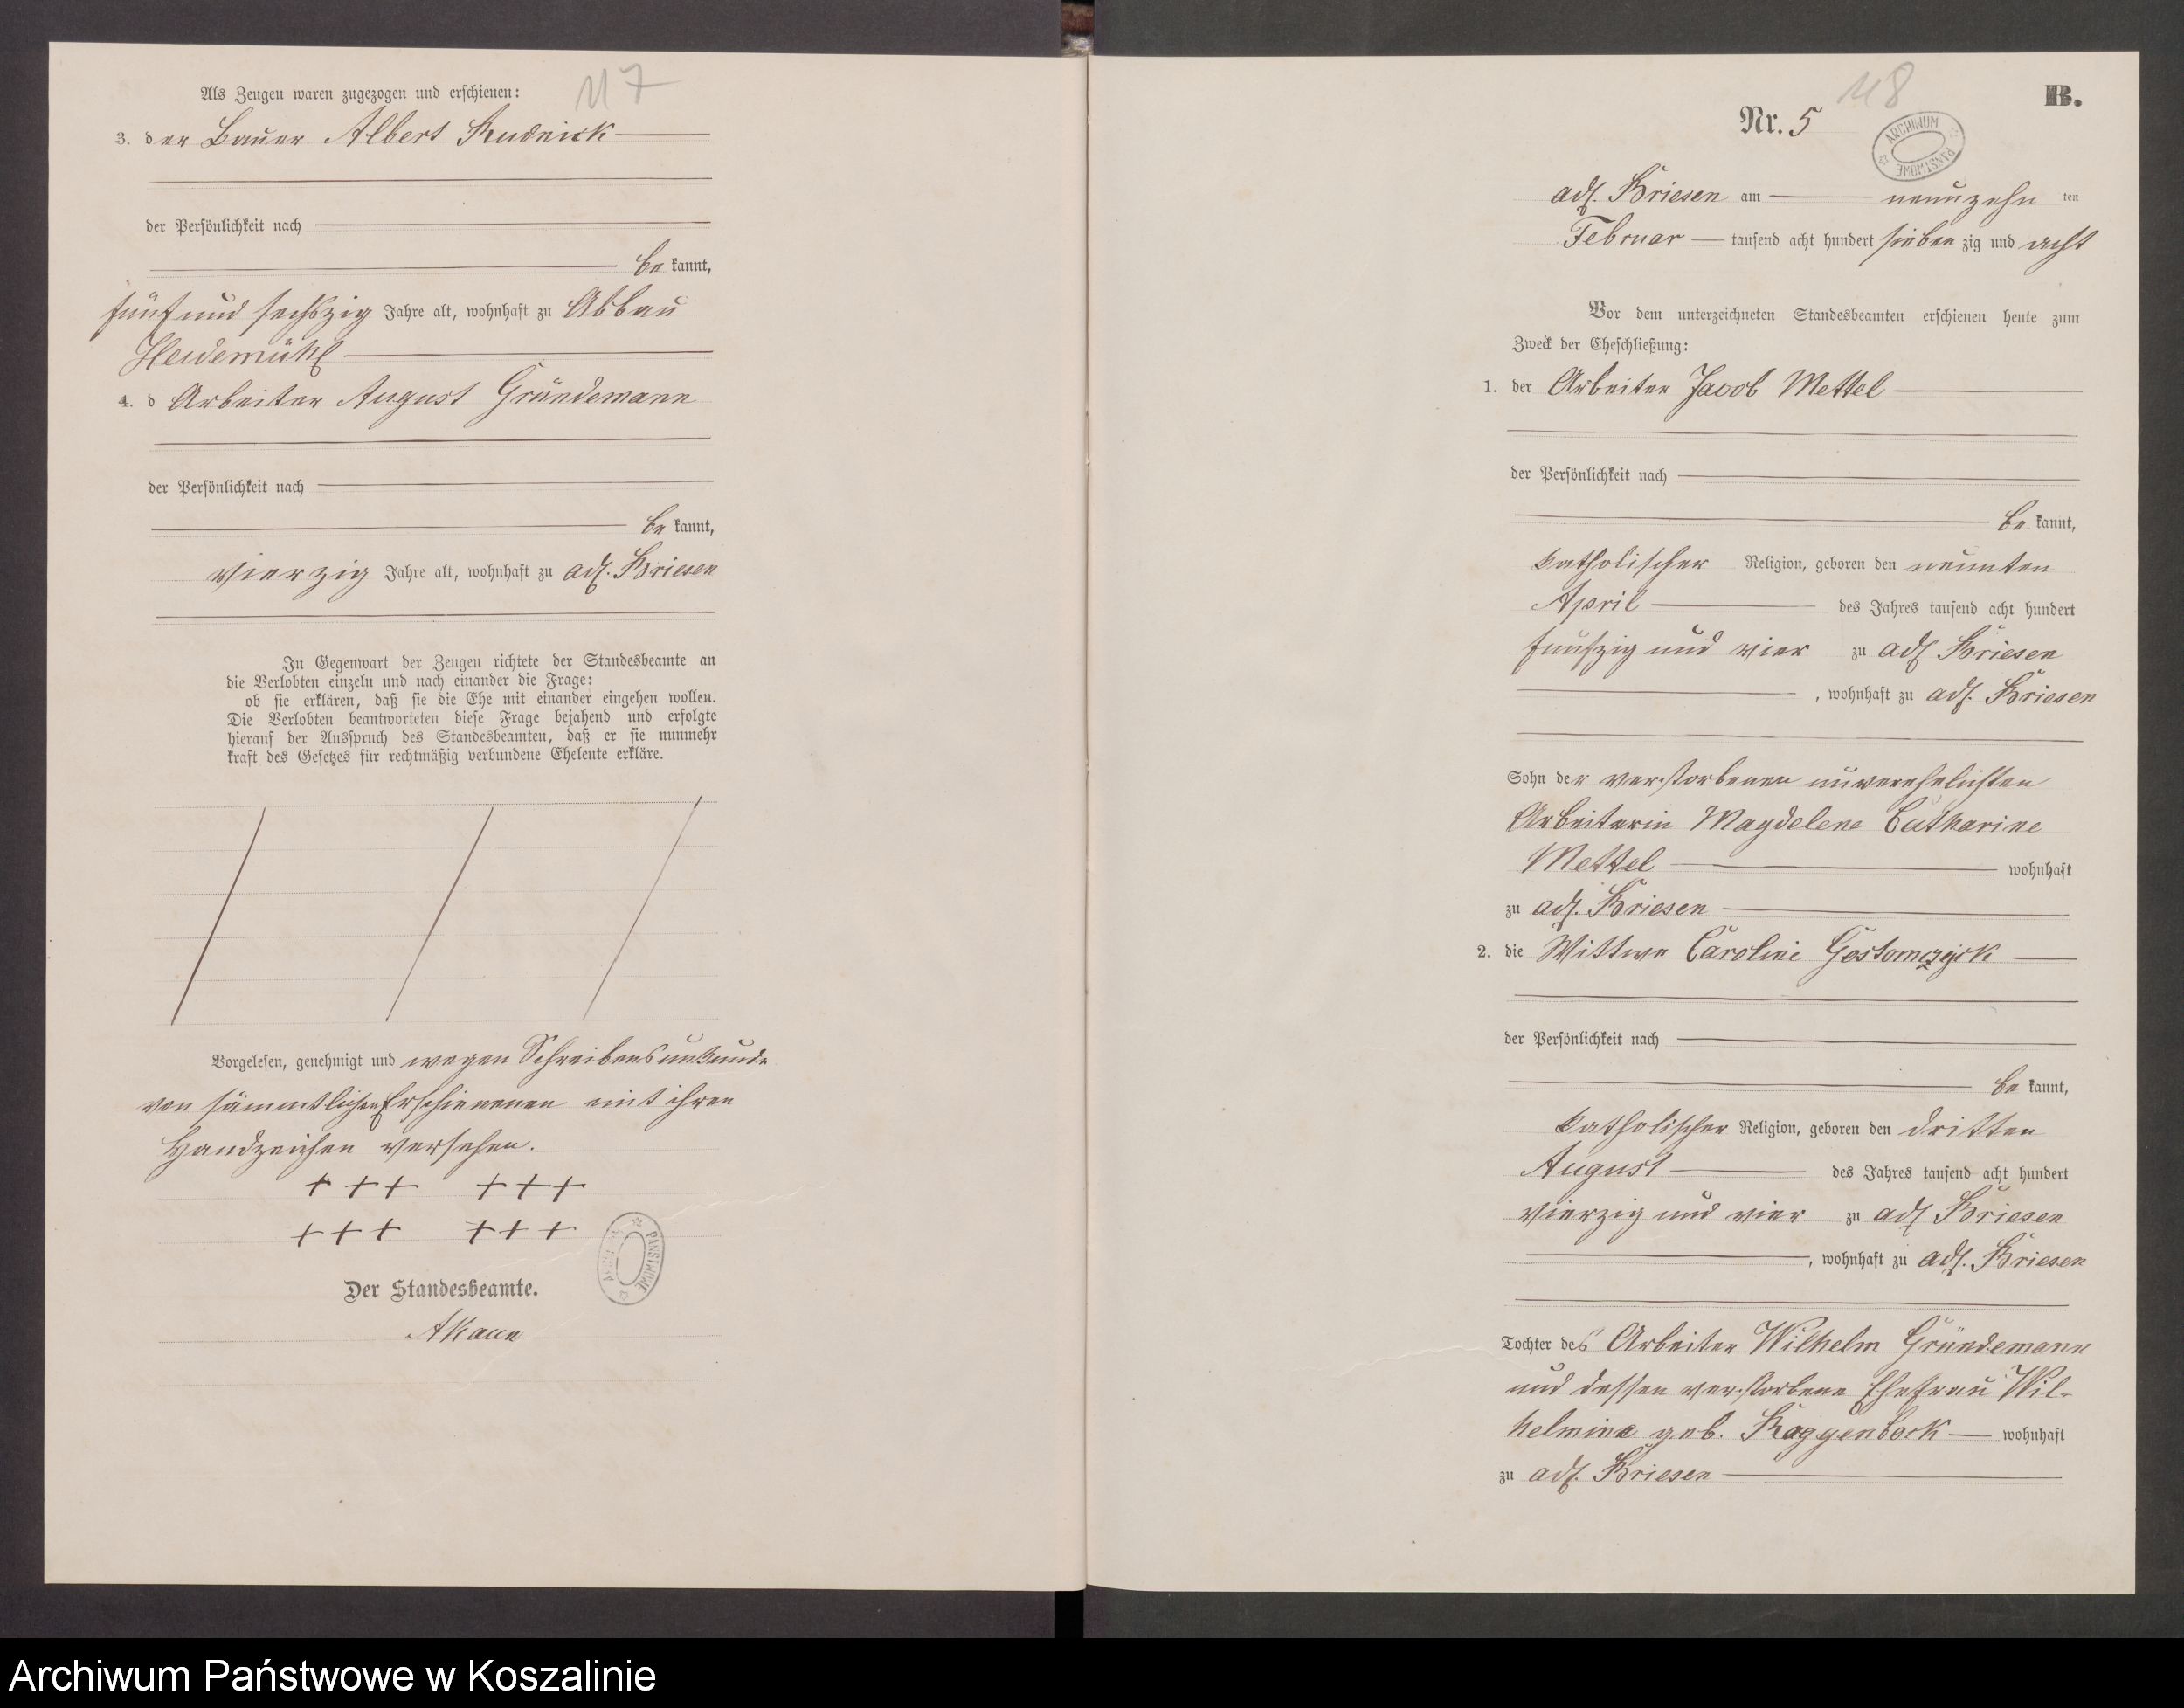 117
Als Zeugen waren zugezogen und erschienen:
3. der Bauer Albert Rudnick
der Persönlichkeit nach
be kannt,
fünf und sechszig Jahre alt, wohnhaft zu Abbau
Heidemühl
4. d Arbeiter August Gründemann
der Persönlichkeit nach
be kannt,
vierzig Jahre alt, wohnhaft zu adl. Briesen
In Gegenwart der Zeugen richtete der Standesbeamte an
die Verlobten einzeln und nach einander die Frage:
ob sie erklären, daß sie die Ehe mit einander eingehen wollen.
Die Verlobten beantworteten diese Frage bejahend und erfolgte
hierauf der Ausspruch des Standesbeamten, daß er sie nunmehr
kraft des Gesetzes für rechtmäßig verbundene Eheleute erkläre.
Vorgelesen, genehmigt und wegen Schreibensunkunde
von sämmtlichen Erschienenen mit ihren
Handzeichen versehen.
+ + + + + +
+ + + + + +
Der Standesbeamte.
ARCHIWUM PAŃSTWOWE
118
B.
Nr. 5
ARCHIWUM PAŃSTWOWE
adl. Briesen am neunzehn ten
Februar tausend acht hundert sieben zig und acht
Vor dem unterzeichneten Standesbeamten erschienen heute zum
Zweck der Eheschließung:
1. der Arbeiter Jacob Mettel
der Persönlichkeit nach
be kannt,
katholischer Religion, geboren den neunten
April des Jahres tausend acht hundert
funfzig und vier zu adl Briesen
, wohnhaft zu adl. Briesen
Sohn der verstorbenen unverehelichten
Arbeiterin Magdelene Catharine
Mettel wohnhaft
zu adl. Briesen
2. die Wittwe Caroline Gostomczyck
der Persönlichkeit nach
be kannt,
katholischer Religion, geboren den dritten
August des Jahres tausend acht hundert
vierzig und vier zu adl Briesen
, wohnhaft zu adl. Briesen
Tochter des Arbeiter Wilhelm Gründemann
und dessen verstorbene Ehefrau Wil-
helmine geb. Raggenbock wohnhaft
zu adl. Briesen
Archiwum Państwowe w Koszalinie